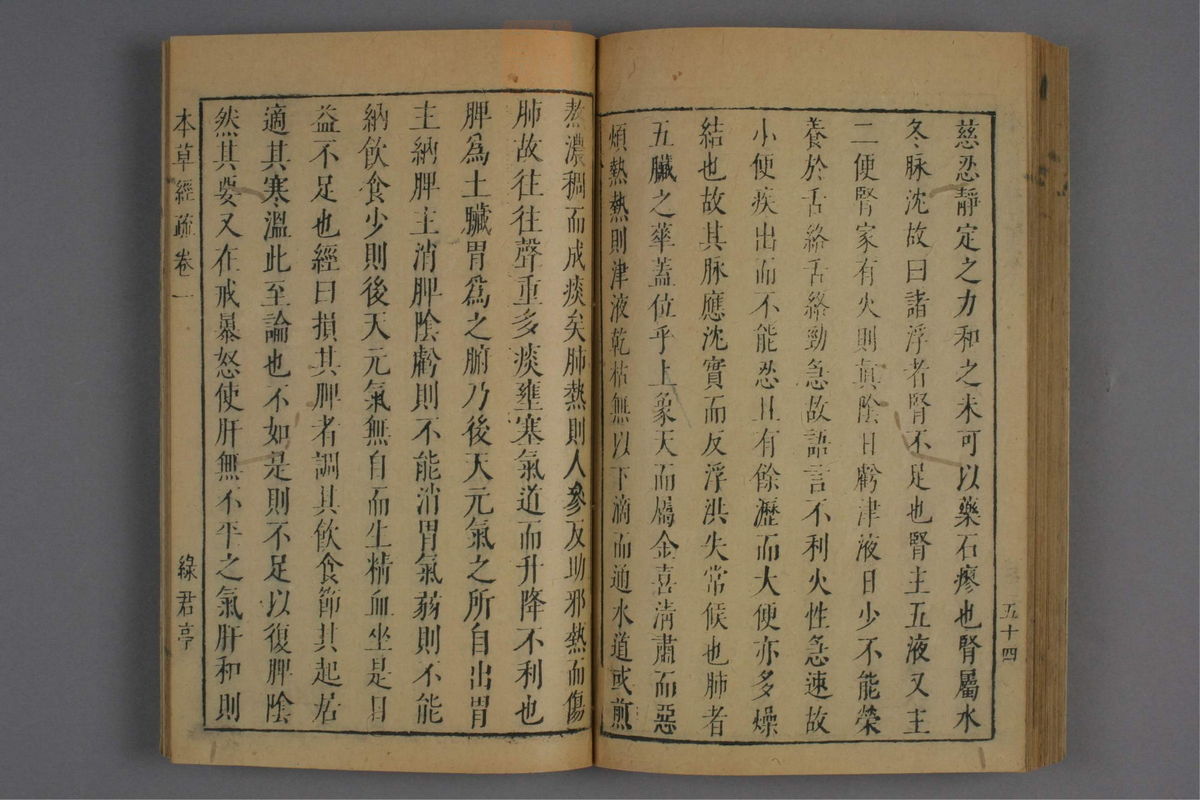 慈忍靜定之力和之未可以藥石瘳也腎屬水
冬脉沈故曰諸浮者腎不足也腎主五液又主
二便腎家有火則真陰日虧津液日少不能榮
養於舌絡舌絡勁急故語言不利火性急速故
小便疾出而不能忍且有餘瀝而大便亦多燥
結也故其脉應沈實而反浮洪失常候也肺者
五臟之華蓋位乎上象天而屬金喜清肅而惡
煩熱熱則津液乾枯無以下滴而通水道或煎
五十四
熬濃稠而成痰矣肺熱則人參反助邪熱而傷
肺故往往聲重多痰壅塞氣道而升降不利也
脾爲土臟胃爲之腑乃後天元氣之所自出胃
主納脾主消脾陰虧則不能消胃氣弱則不能
納飲食少則後天元氣無自而生精血坐是日
益不足也經曰損其脾者調其飲食節其起居
適其寒溫此至論也不如是則不足以復脾陰
然其要又在戒暴怒使肝無不平之氣肝和則
本草經疏卷一
綠君亭